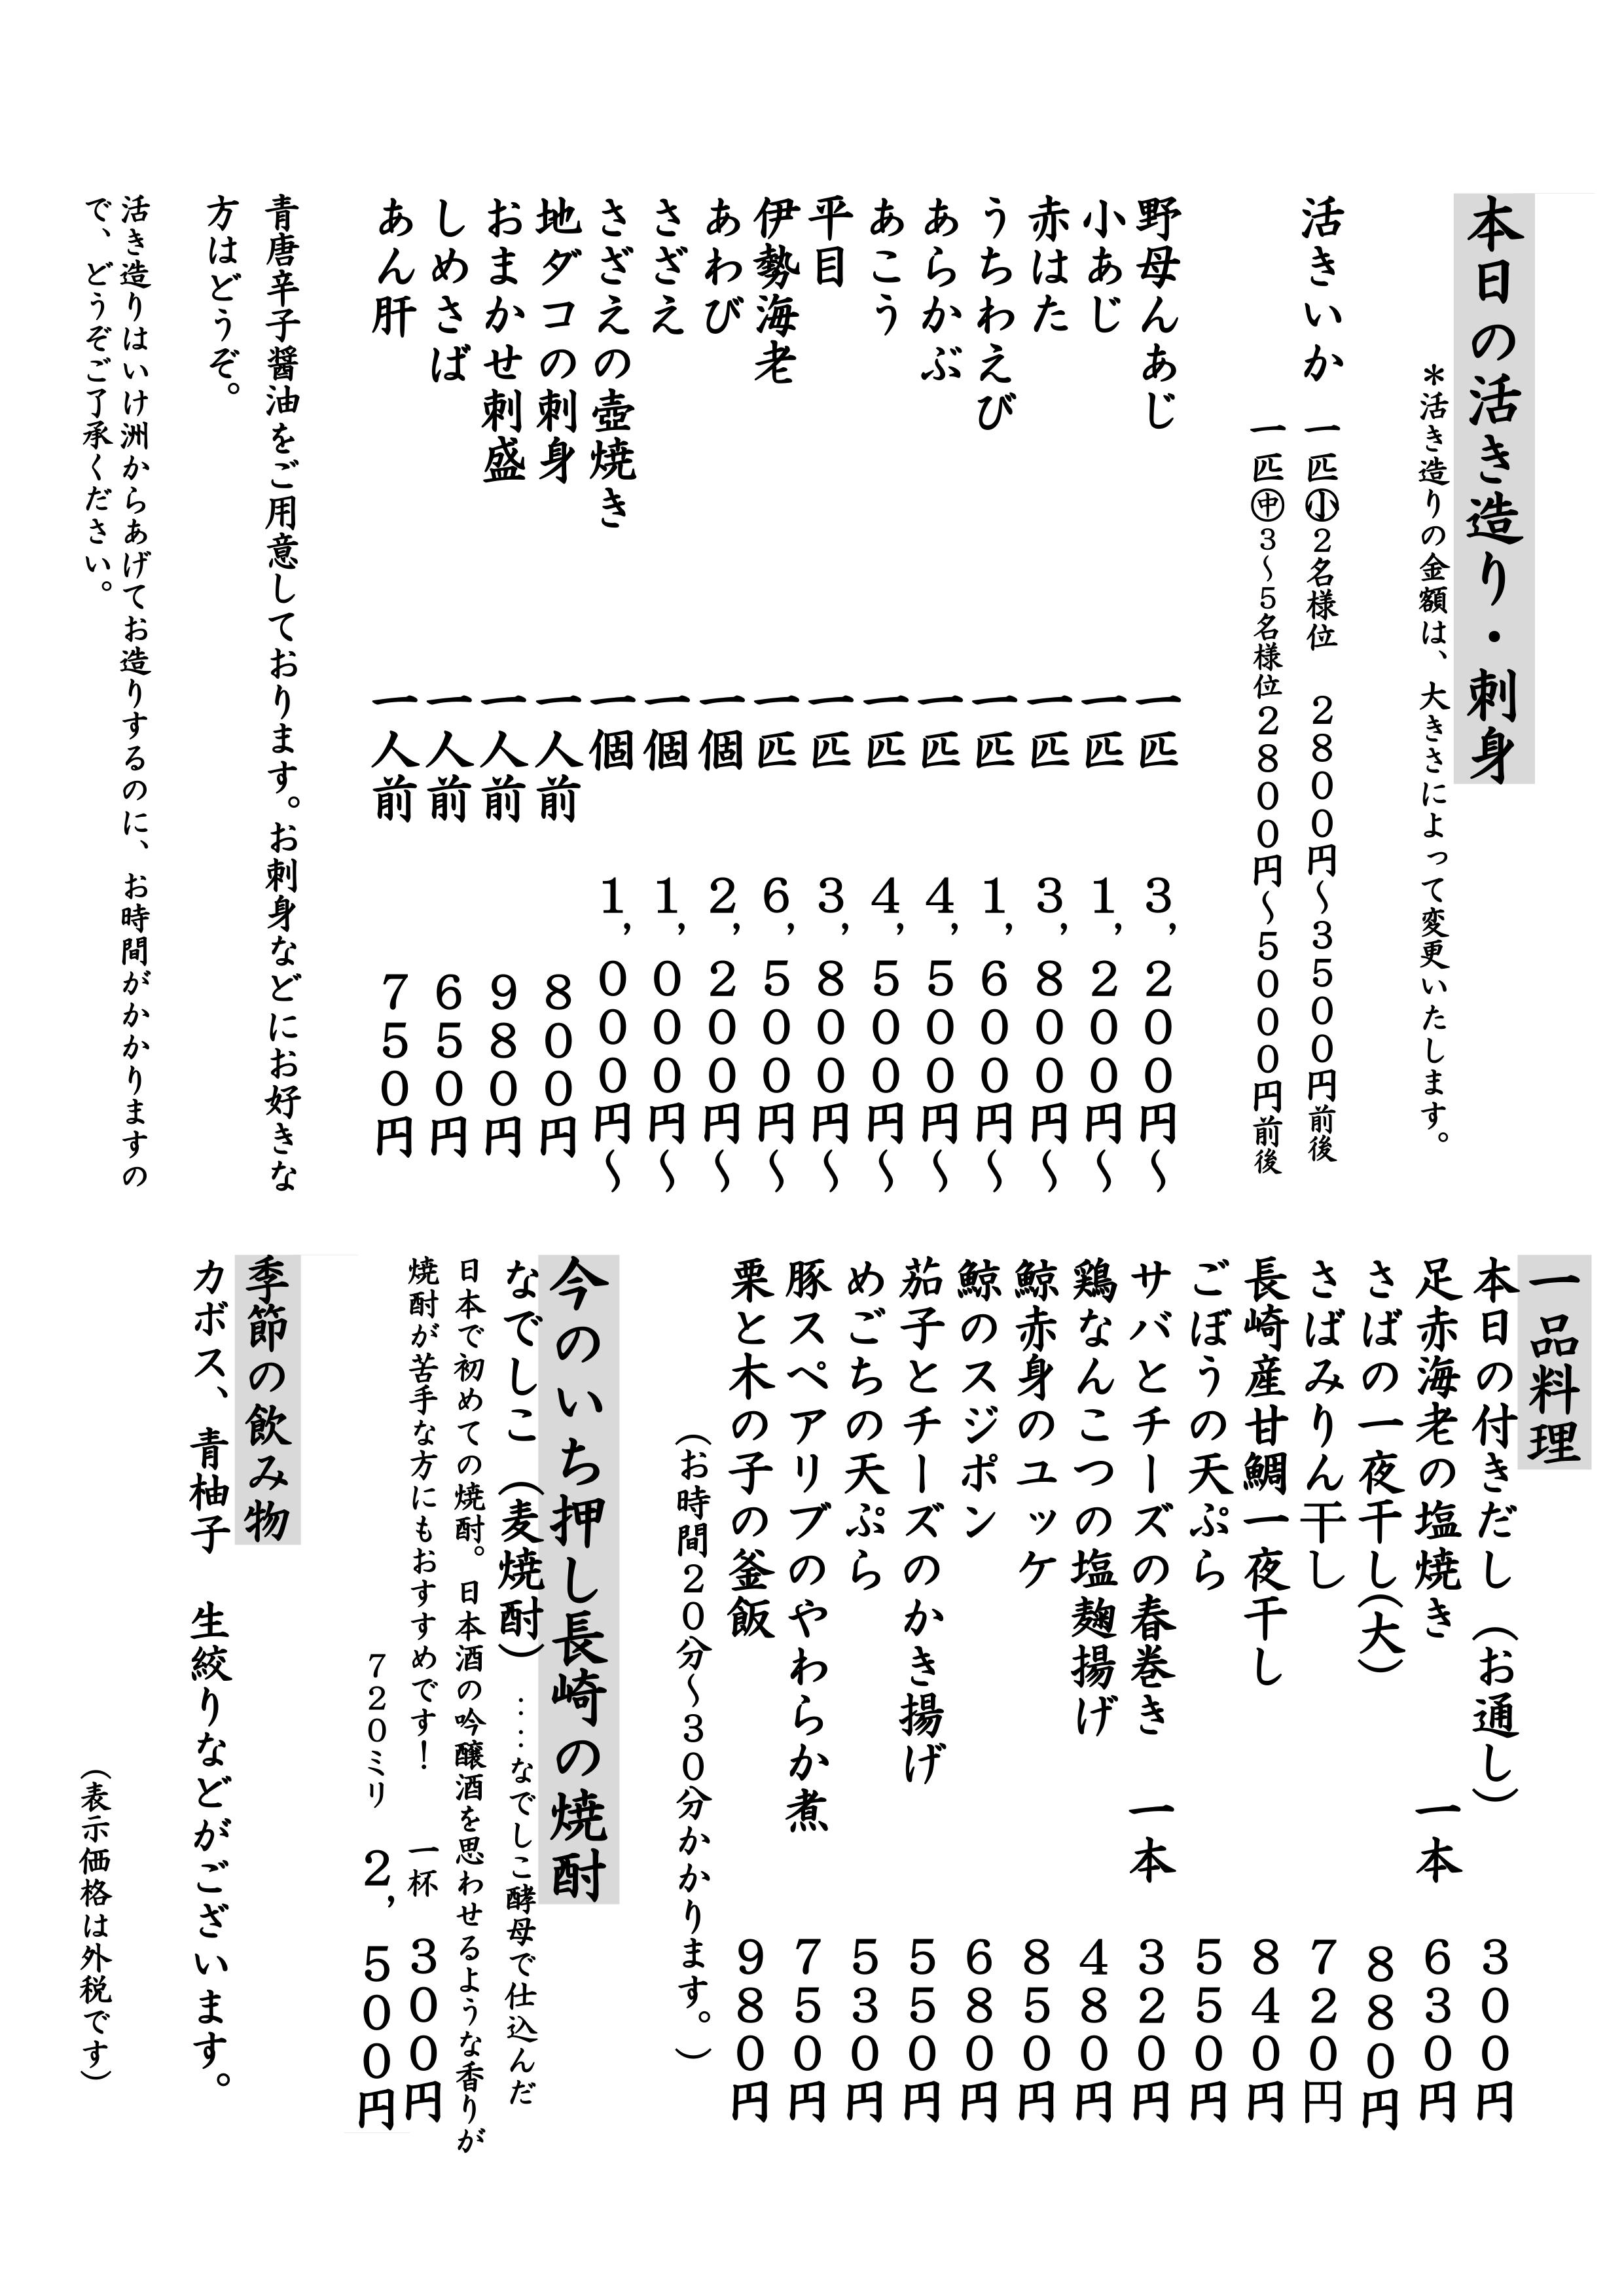 本日の活き造り・刺身
＊活き造りの金額は、大きさによって変更いたします。
活きいか　一匹㊥小２名様位　２８００円～３５００円前後
一匹㊥３～５名様位２８００円～５０００円前後
野母んあじ　一匹　３，２００円～
小あじ　一匹　１，２００円～
赤はた　一匹　３，８００円～
うちわえび　一匹　１，６００円～
あらかぶ　一匹　４，５００円～
あこう　一匹　４，５００円～
平目　一匹　３，８００円～
伊勢海老　一匹　６，５００円～
あわび　一個　２，２００円～
さざえ　一個　１，０００円～
さざえの壺焼き　一個　１，０００円～
地ダコの刺身　一人前　８００円
おまかせ刺盛　一人前　９８０円
しめさば　一人前　６５０円
あん肝　一人前　７５０円
青唐辛子醤油をご用意しております。お刺身などにお好きな
方はどうぞ。
活き造りはいけ洲からあげてお造りするのに、お時間がかかりますの
で、どうぞご了承ください。
一品料理
本日の付きだし（お通し）　３００円
足赤海老の塩焼き　一本　６３０円
さばの一夜干し（大）　８８０円
さばみりん干し　７２０円
長崎産甘鯛一夜干し　８４０円
ごぼうの天ぷら　５５０円
サバとチーズの春巻き　一本　３２０円
鶏なんこつの塩麹揚げ　４８０円
鯨赤身のユッケ　８５０円
鯨のスジポン　６８０円
茄子とチーズのかき揚げ　５５０円
めごちの天ぷら　５３０円
豚スペアリブのやわらか煮　７５０円
栗と木の子の釜飯　９８０円
（お時間２０分～３０分かかります。）
今のいち押し長崎の焼酎
なでしこ（麦焼酎）‥‥なでしこ酵母で仕込んだ
日本で初めての焼酎。日本酒の吟醸酒を思わせるような香りが
焼酎が苦手な方にもおすすめです！　一杯　３００円
７２０ミリ　２，５００円
季節の飲み物
カボス、青柚子　生絞りなどがございます。
（表示価格は外税です）